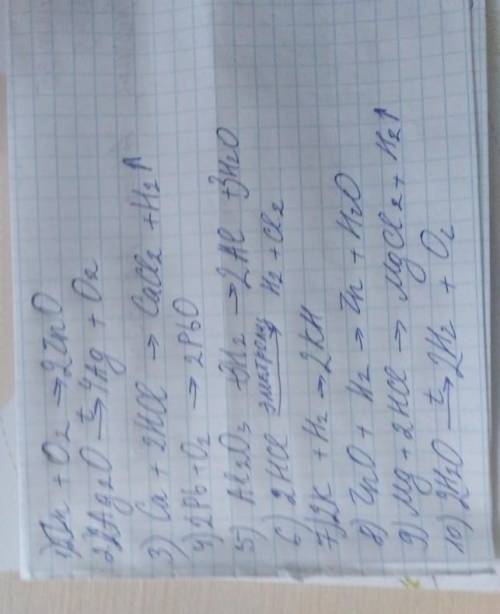 1) 2Zn + O2 → 2ZnO
2) 2Ag2O t→ 4Ag + O2
3) Ca + 2HCl → CaCl2 + H2↑
4) 2Pb + O2 → 2PbO
5) Al2O3 + 3H2 → 2Al + 3H2O
6) 2HCl → H2 + Cl2
7) 2K + H2 → 2KH
8) ZnO + H2 → Zn + H2O
9) Mg + 2HCl → MgCl2 + H2↑
10) 2H2O t→ 2H2 + O2